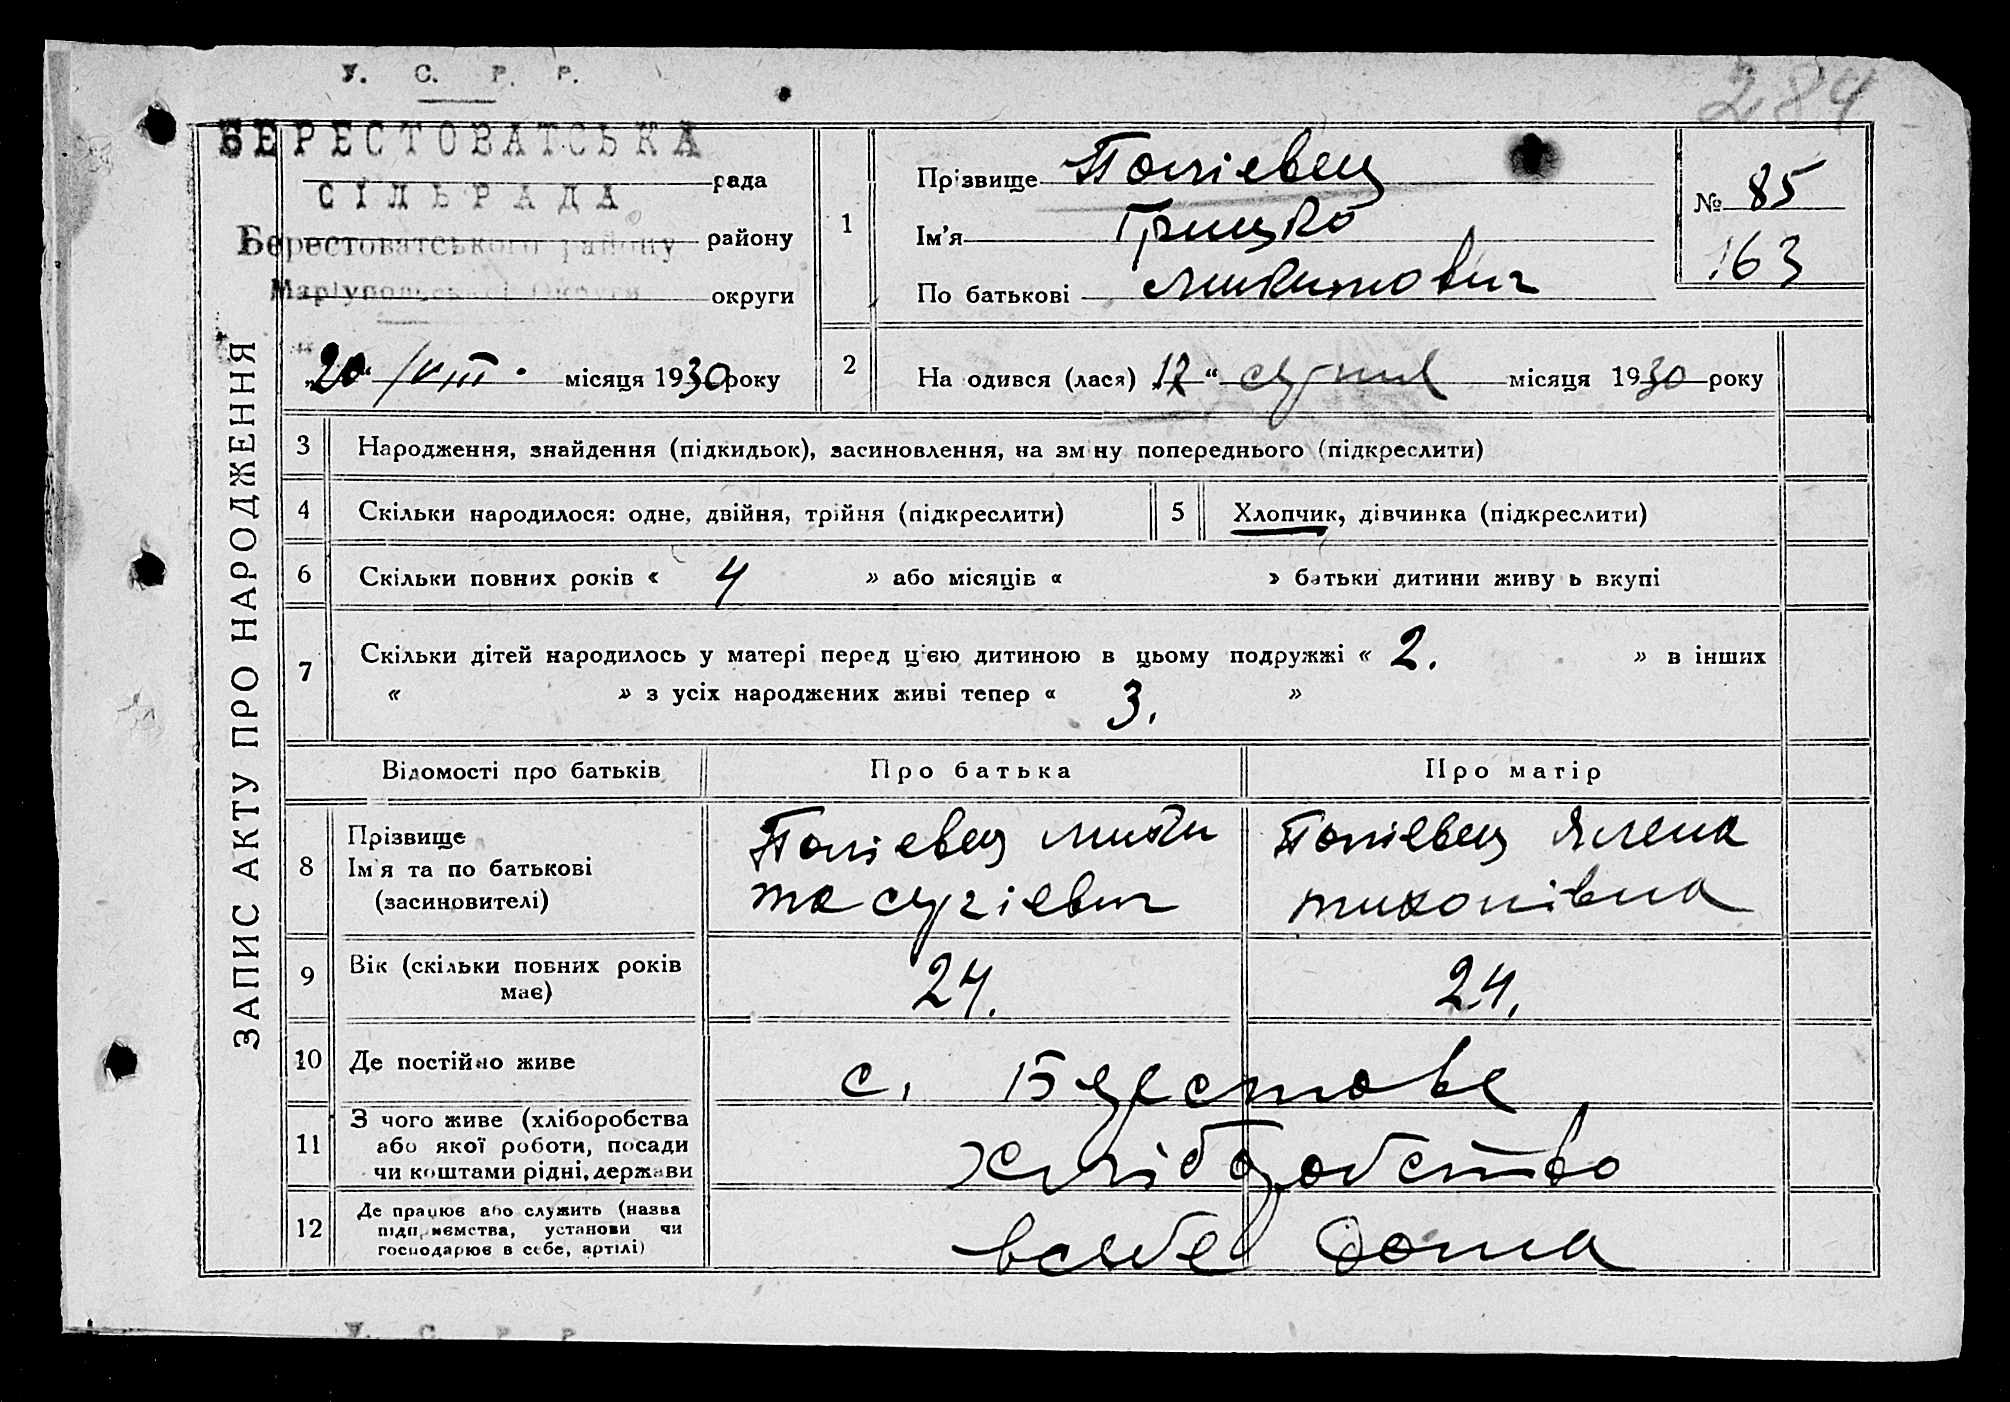 У. С. Р. Р.
284
БЕРЕСТОВАТСЬКА
рада
СІЛЬРАДА
Берестоватського району району
Маріупольської Округи округи
„20“ /VIII. місяця 1930 року
ЗАПИС АКТУ ПРО НАРОДЖЕННЯ
1 Прізвище Поліевец
Ім'я Грицко
По батькові Микитович
№ 85
163
2 На одився (лася) 17 “ серпня місяця 1930 року
3 Народження, знайдення (підкидьок), засиновлення, на зм ну попереднього (підкреслити)
4 Скільки народилося: одне, двійня, трійня (підкреслити) 5 Хлопчик, дівчинка (підкреслити)
6 Скільки повних років « 4 » або місяців « » батьки дитини живу ь вкупі
7 Скільки дітей народилось у матері перед цією дитиною в цьому подружжі « 2. » в інших
« » з усіх народжених живі тепер « 3. »
Відомості про батьків Про батька Про матір
8 Прізвище
Ім'я та по батькові
(засиновителі)
Поліевец Мики
та сергіевич
Поліевец Ялена
тихонівна
9 Вік (скільки повних років
має)
24. 24.
10 Де постійно живе с. Берестове
11 З чого живе (хліборобства
або якої роботи, посади
чи коштами рідні, держави
хліборобство
12 Де працює або служить (назва
підприємства, установи чи
господарює в себе, артілі)
всебе дома
У. С. Р. Р.